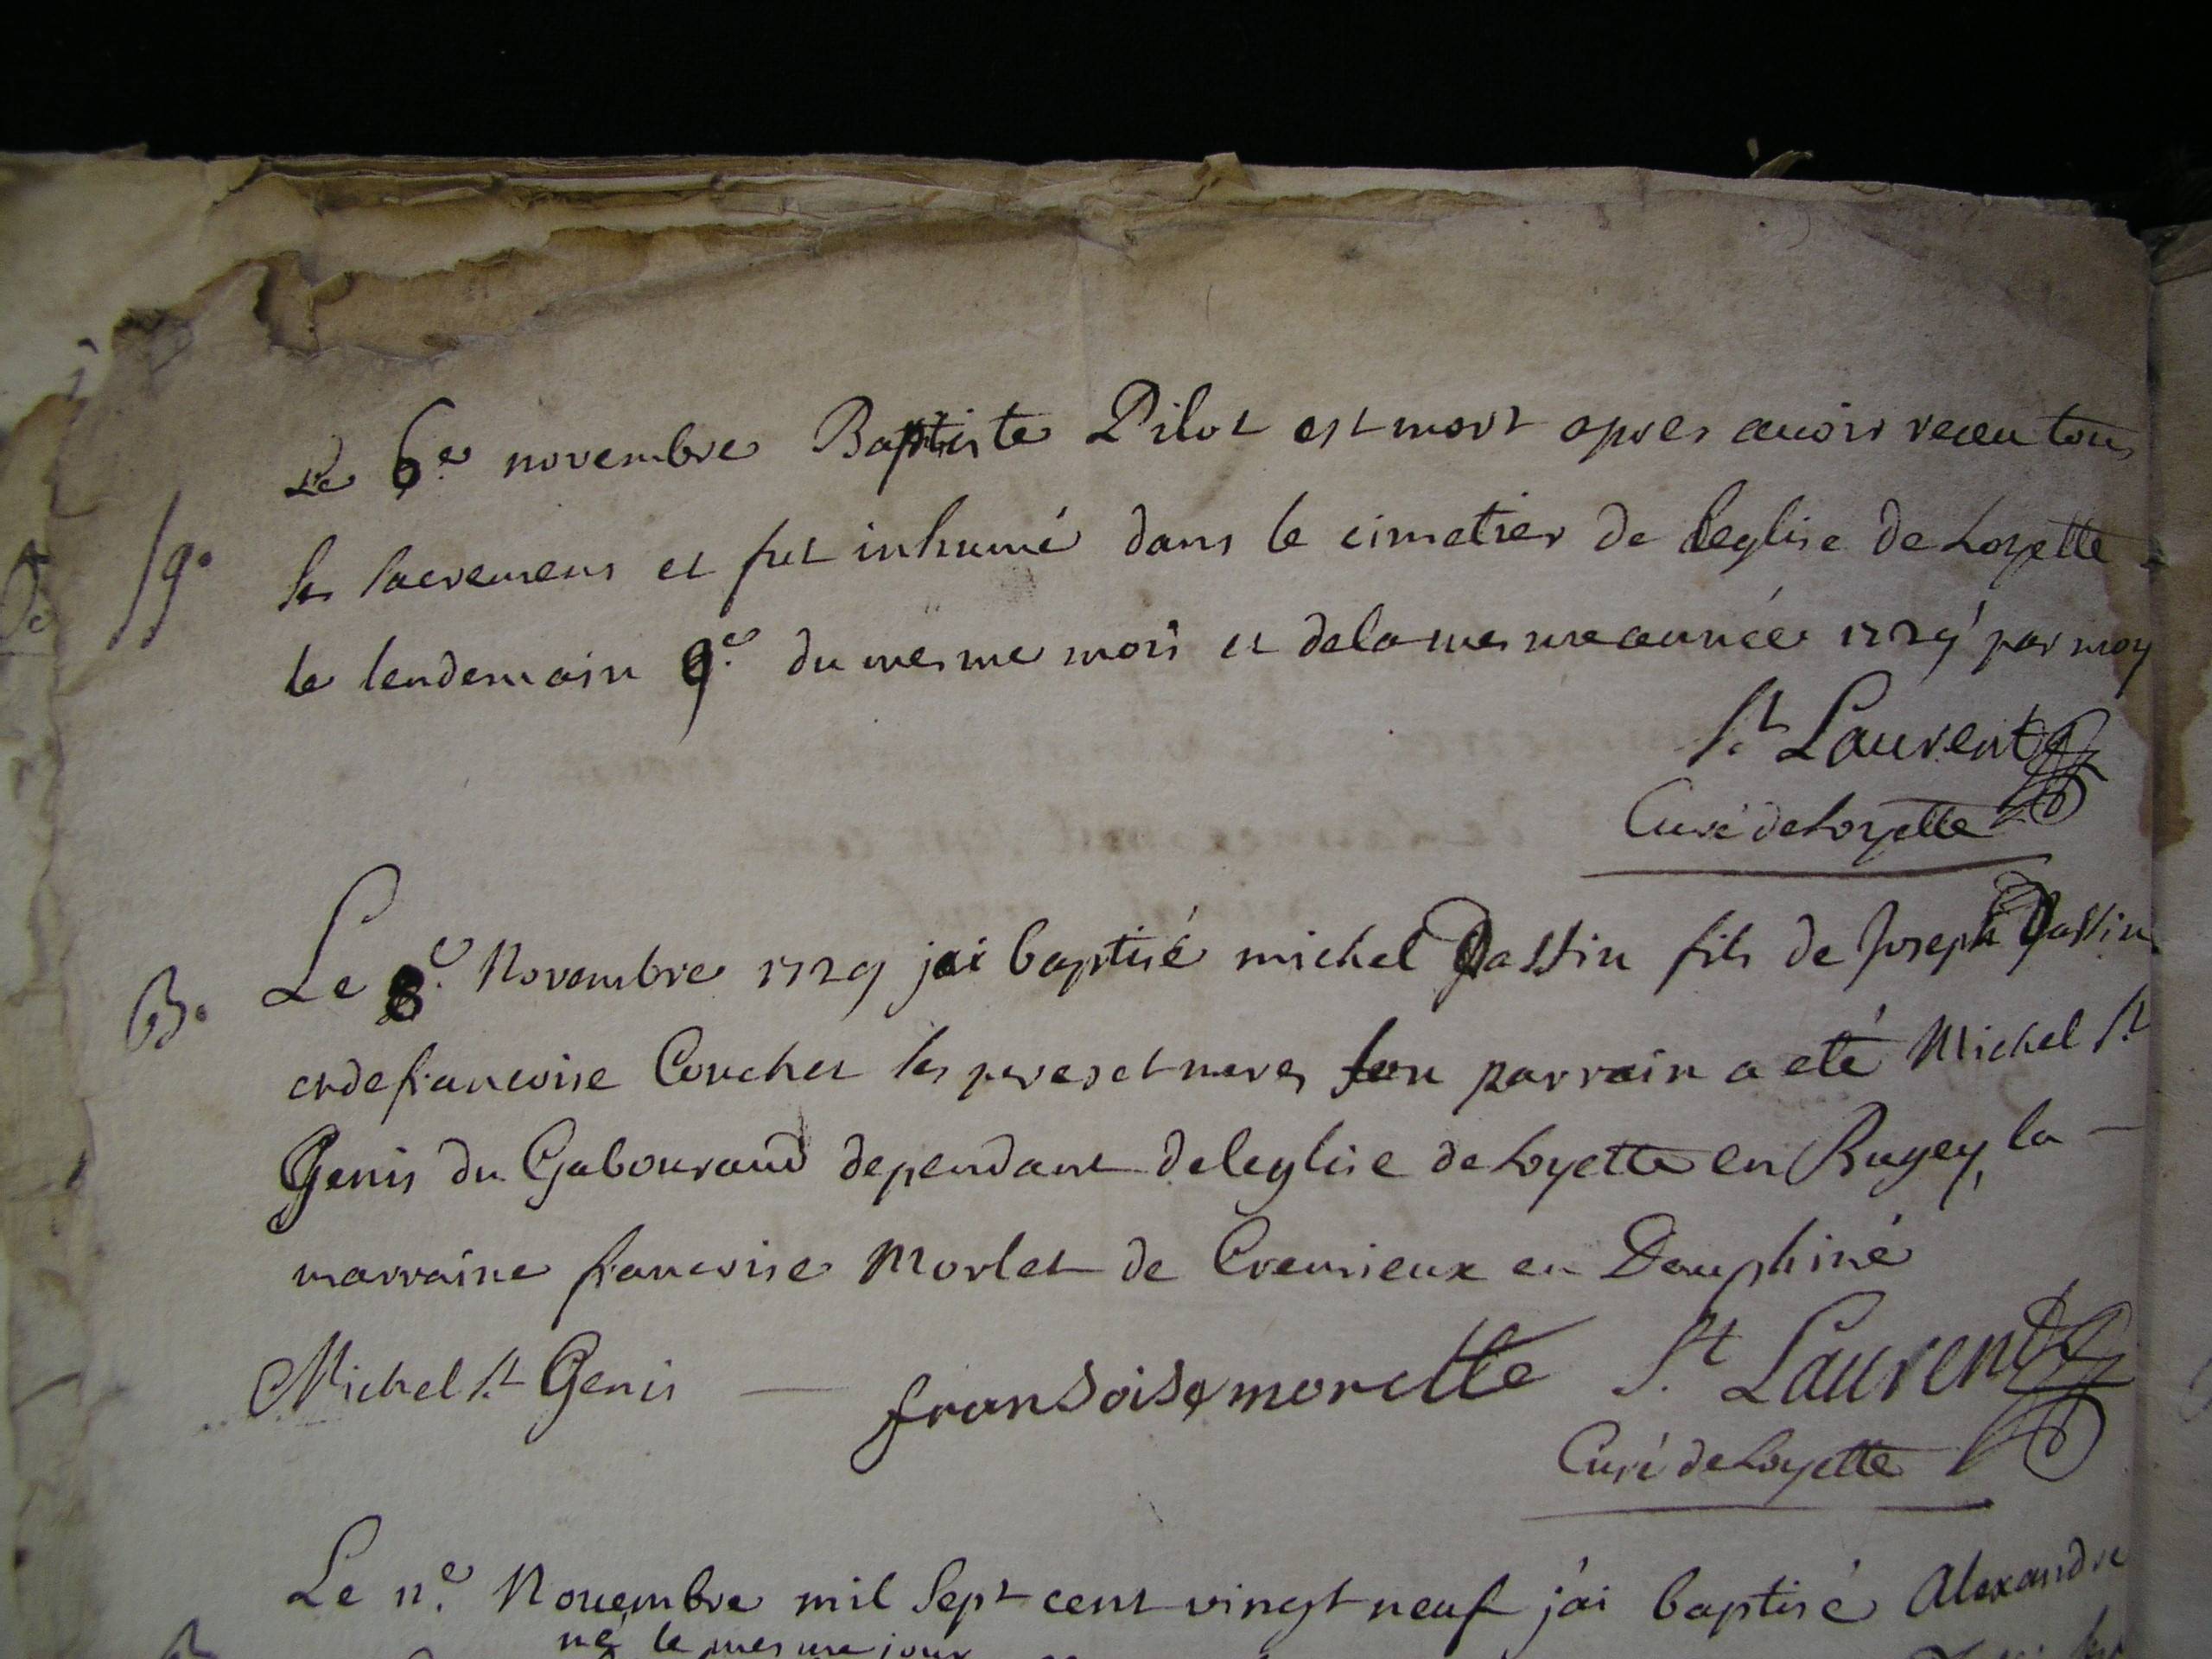 Le 6e novembre Baptiste Pilot est mort apres avoir receu tous
Sg. les sacremens et fut inhumé dans le cimetier de leglise de Loyette
le lendemain 9e du mesme mois et de la mesme année 1729 par moy
St Laurent
Curé de Loyette
B. Le 8e Novembre 1729 jai baptisé michel Passin fils de Joseph Passin
et de francoise Couchet ses peres et meres son parrain a eté Michel St
Genis du Gabouraud dependant de leglise de Loyette en Bugey, la —
marraine francoise Morlet de Cremieux en Dauphiné
Michel St Genis — fransoise morelle St Laurent
Curé de Loyette
Le 11e Novembre mil Sept cent vingt neuf j'ai baptisé Alexandre
né le mesme jour